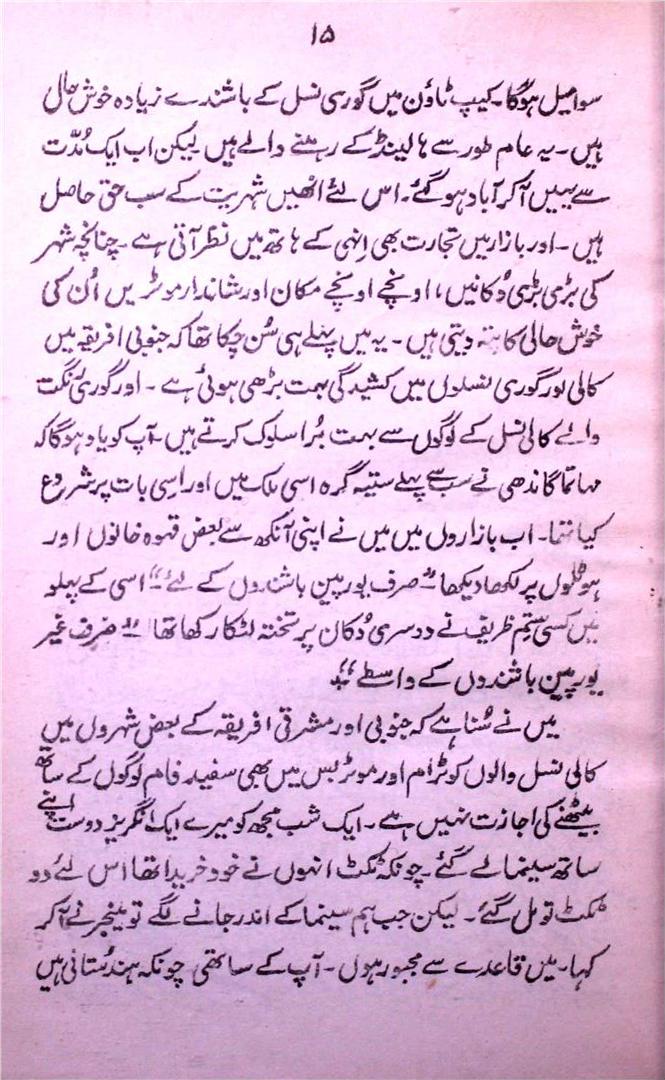 ۱۵
سوا میل ہوگا۔ کیپ ٹاؤن میں گوری نسل کے باشندے زیادہ خوش حال
ہیں۔ یہ عام طور سے ہالینڈ کے رہنے والے ہیں لیکن اب ایک مُدّت
سے یہیں آکر آباد ہوگئے۔ اس لئے اُنھیں شہریت کے سب حق حاصل
ہیں۔ اور بازار میں تجارت بھی اِنہی کے ہاتھ میں نظر آتی ہے۔ چنانچہ شہر
کی بڑی بڑی دُکانیں، اونچے اونچے مکان اور شاندار موٹریں اُن کی
خوش حالی کا پتہ دیتی ہیں۔ یہ میں پہلے ہی سُن چکا تھا کہ جنوبی افریقہ میں
کالی اور گوری نسلوں میں کشیدگی بہت بڑھی ہوئی ہے۔ اور گوری رنگت
والے کالی نسل کے لوگوں سے بہت بُرا سلوک کرتے ہیں۔ آپ کو یاد ہوگا کہ
مہاتما گاندھی نے سب سے پہلے ستیہ گرہ اسی ملک میں اور اسِی بات پر شروع
کیا تھا۔ اب بازاروں میں میں نے اپنی آنکھ سے بعض قہوہ خانوں اور
ہوٹلوں پر لکھا دیکھا ”صرف یورپین باشندوں کے لئے“ اسی کے پہلو
میں کسی ستم ظریف نے دوسری دُکان پر تختہ لٹکا رکھا تھا ”صرف غیر
یورپین باشندوں کے واسطے“
میں نے سُنا ہے کہ جنوبی اور مشرقی افریقہ کے بعض شہروں میں
کالی نسل والوں کو ٹرام اور موٹر بس میں بھی سفید فام لوگوں کے ساتھ
بیٹھنے کی اجازت نہیں ہے۔ ایک شب مجھ کو میرے ایک انگریز دوست اپنے
ساتھ سینما لے گئے۔ چونکہ ٹکٹ انہوں نے خود خریدا تھا اس لئے دو
ٹکٹ تو مل گئے۔ لیکن جب ہم سینما کے اندر جانے لگے تو مینجر نے آکر
کہا۔ میں قاعدے سے مجبور ہوں۔ آپ کے ساتھی چونکہ ہندُستانی ہیں